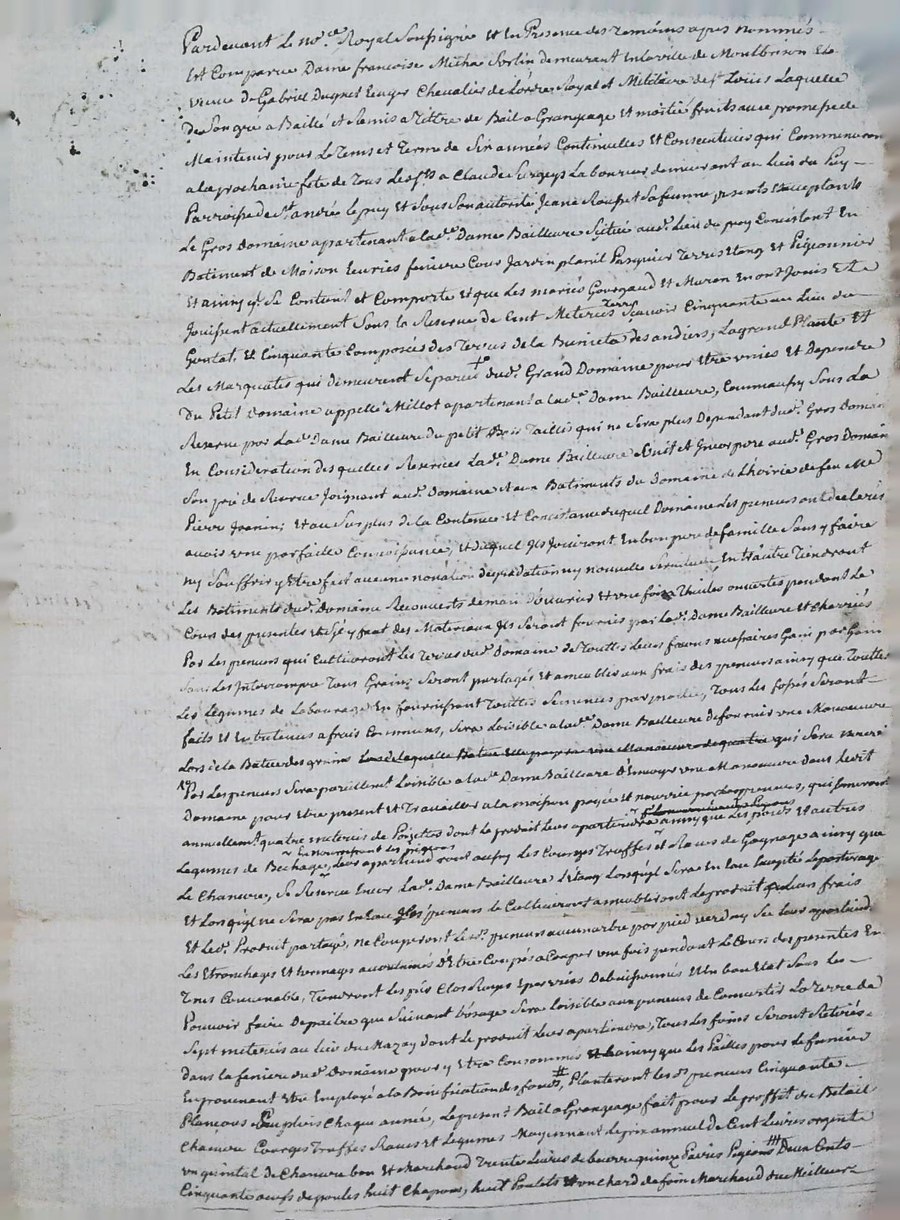 Pardevant Le no.re Royal Soussigné Et En Presence des temoins apres nommés
Est Comparue Dame francoise Micha Sorlin demeurant En la ville de Montbrison Et
veuve de Gabriel Dugnet Ecuyer Chevalier de L'ordre Royal et Militaire de S.t Loüis Laquelle
de Son gré a Baillé et Remis a Tittre de Bail a Grangeage et moitié fruits avec promesse de
Maintenir pour Le Tems et Terme de Six années Continuelles Et Consecutives qui Commenceron
a la prochaine fête de Tous Les S.ts a Claude Laboureur demeurant au Lieu du Puy
Parroisse de S.t andré le puy Et Sous Son autorité Jeane Sa femme presents Acceptants
Le Gros domaine appartenant a lad.e Dame Bailleure Situé aud. Lieu du puy Concistant En
Batiment de Maison Ecuries feniere Cour Jardin Pasquier Terres Etang Et Pigeonnier
Et ainsy q. Se Contient et Comporte Et que Les mariés Gourgaud et Muron En ont Jouis Et
Jouissent actuellement Sous la Reserve de Cent Meterées Terres Scavoir Cinquante au Lieu du
Goutat, Et Cinquante Composées des Terres de la des andiers, Lagrand Plante Et
Les Marquates qui demeurent Separées dud. Grand Domaine pour Etre unies Et Dependre
Du Petit Domaine appellé Millot apartenant a lad.e Dame Bailleure, Comm'aussy Sous La
Reserve par Lad.e Dame Bailleure du petit Bois Taillis qui ne Sera plus Dependant dud. Gros domain
En Consideration des quelles Reserves Lad.e Dame Bailleure aud. Gros Domain
Son pré de Reserve Joignant aud. Domaine Et aux Batiments du Domaine de L'hoirie de feu M.e
Pierre Et au Surplus de la Contenue Et Concistance duquel Domaine Les preneurs ont declarés
avoir une parfaitte Connoissance, Et duquel ils Jouiront En bon pere de famille Sans y faire
ny Souffrir y Etre fait aucune novation degradation ny nouvelle Servitude, Entr'autre Tiendront
Les Batiments dud. Domaine Recouverts de main d'ouvrier Et une fois Thuiles ouvertes pendant Le
Cours des presentes Et S'il y faut des Materiaux Ils Seront fournis par Lad. Dame Bailleure Et Charriés
Par Les preneurs qui Cultiveront Les Terres dud. Domaine de Touttes Leurs facons necessaires Gain par Gain
Sans Les Interrompre Tous Grains Seront partagés Et ameublis aux frais des preneurs ainsy que Touttes
Les Legumes de Labourage En fournissant Touttes Semences par moitié, Tous Les fossés Seront
faits Et Entretenus a frais Communs, Sera Loisible a lad.e Dame Bailleure de fournir une Manoeuvre
Lors de la Batue des grains qui Sera nourri
Par Les preneurs Sera pareillem.t Loisible a lad.e Dame Bailleure d'Envoyer une Manoeuvre dans led.it
Domaine pour Etre present et Travailler a la moisson payée et nourrie par les preneurs, qui Semeront
annuellem.t quatre meterées de dont le produit Leur apartiendra ainsy que Les poids Et autres
Legumes de Bechage, En nourrissant les pigeons Leur apartiendront aussy Les Courges Truffes Et Raves de Gagnage ainsy que
Le Chanvre, Se Reserve Encor Lad.e Dame Bailleure L'Etang Lorsqu'il Sera En Eau Excepté Le paturage
Et Lorsqu'il ne Sera pas En Eau Les preneurs Le Cultiveront ameubliront Le produit a Leur frais
Et Led. Produit partagé, ne Couperont Les d. preneurs aucun arbre par pied verd ny Sec Leur apartiendr
Les Etronchages Et Emmages accoutumés D'Etre Coupés a Couper une fois pendant Le Cours des presentes En
Tems Convenable, Tiendront Les prés Clos Rasés Eparviés Debuissonnés Et En bon Etat Sans Les
Pouvoir faire Depaitre que Suivant L'usage Sera Loisible aux preneurs de Convertir La Terre de
Sept meterées au Lieu du Razay dont Le produit Leur apartiendra, Tous Les foins Seront Retirés
Dans la feniere dud. Domaine pour y Etre Consommés ainsy que Les Pailles pour Le fumier
En provenant Etre Employé a la Bonification des fonds, # Planteront Les d. preneurs Cinquante
Plancons Chaque année, Le present Bail a Grangeage fait pour Le proffit du Betail
Chanvre Courges Truffes Raves et Legumes Moyennant Le prix annuel de Cent Livres argent
un quintal de Chanvre bon Et Marchand Trente Livres de beurre quinze Paires Pigeons Deux Cents
Cinquante oeufs de poules huit Chapons, huit Poulets Et un Chard de foin Marchand du Meilleur